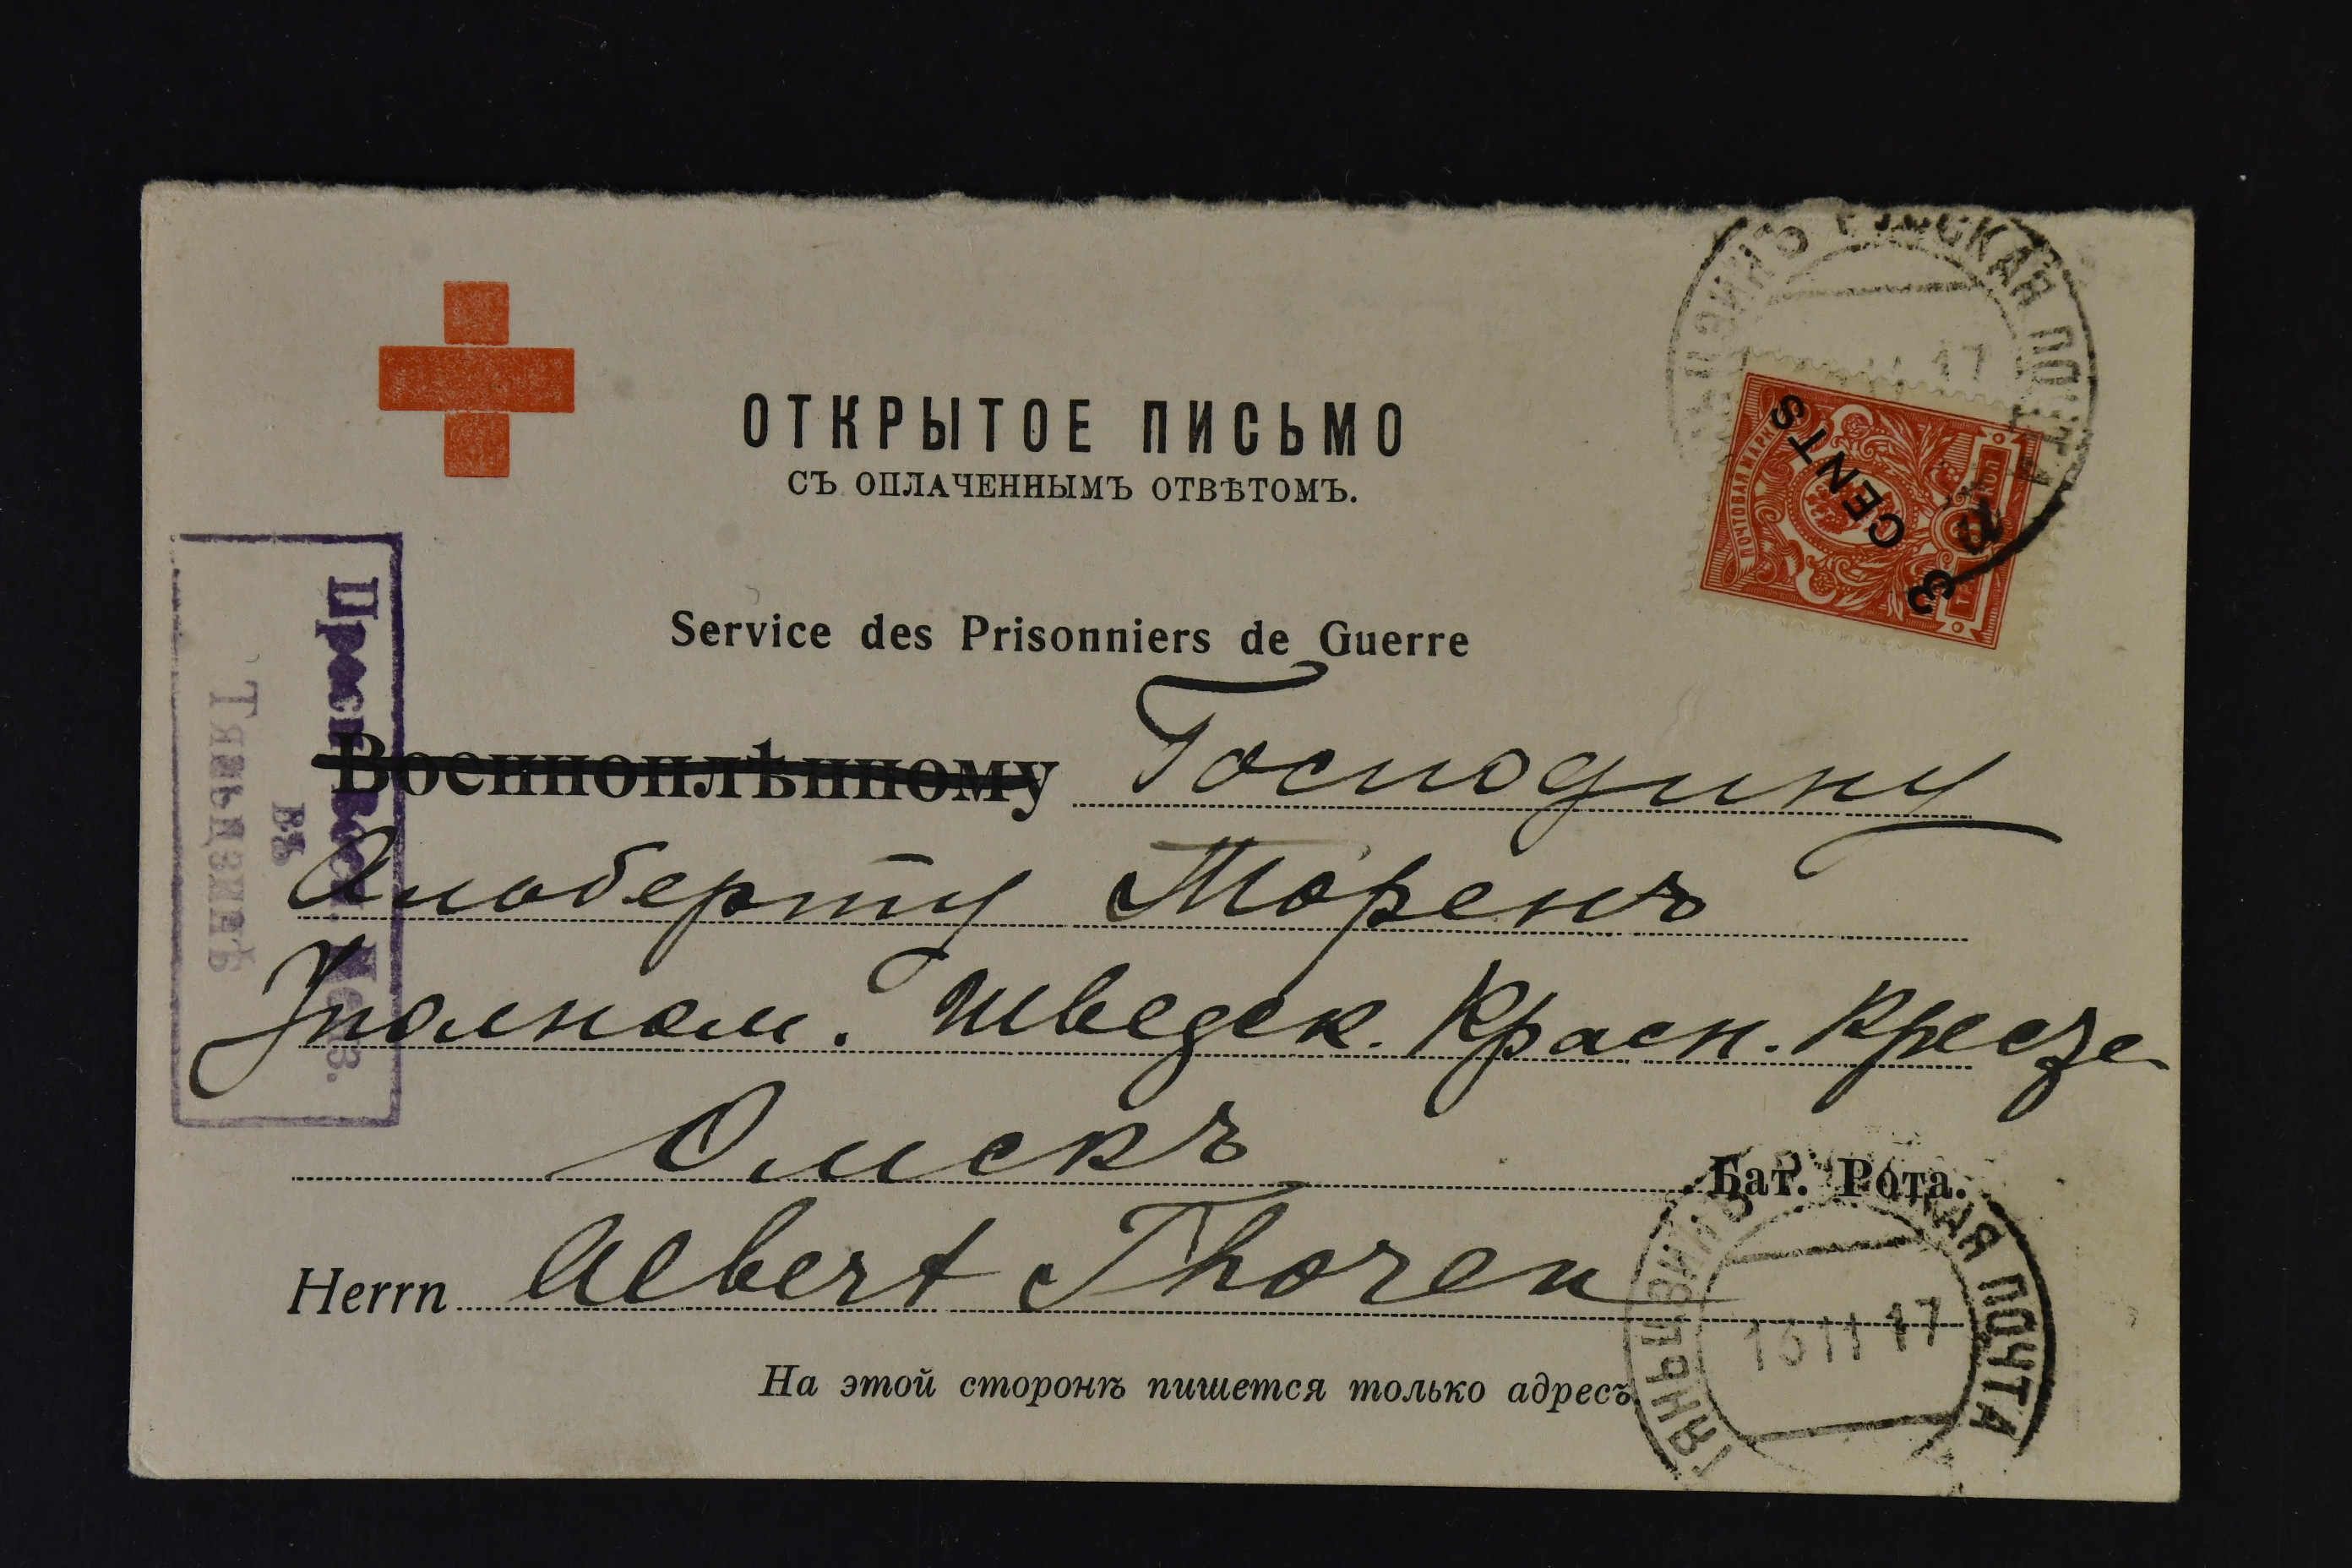 ОТКРЫТОЕ ПИСЬМО
СЪ ОПЛАЧЕННЫМЪ ОТВѢТОМЪ.
РУССКАЯ ПОЧТА
17
ПОЧТОВАЯ МАРКА
3 CENTS
Service des Prisonniers de Guerre
Военноплѣнному Господину
Альберту Торенъ
Уполном. Шведск. Красн. Кресте
Омскъ
Бат. Рота.
Herrn Albert Thoren
На этой сторонѣ пишется только адресъ
ТЯНЬЦЗИНЪ РУССКАЯ ПОЧТА
13 11 17
Просм. воен. ценз.
въ
Тяньцзинѣ